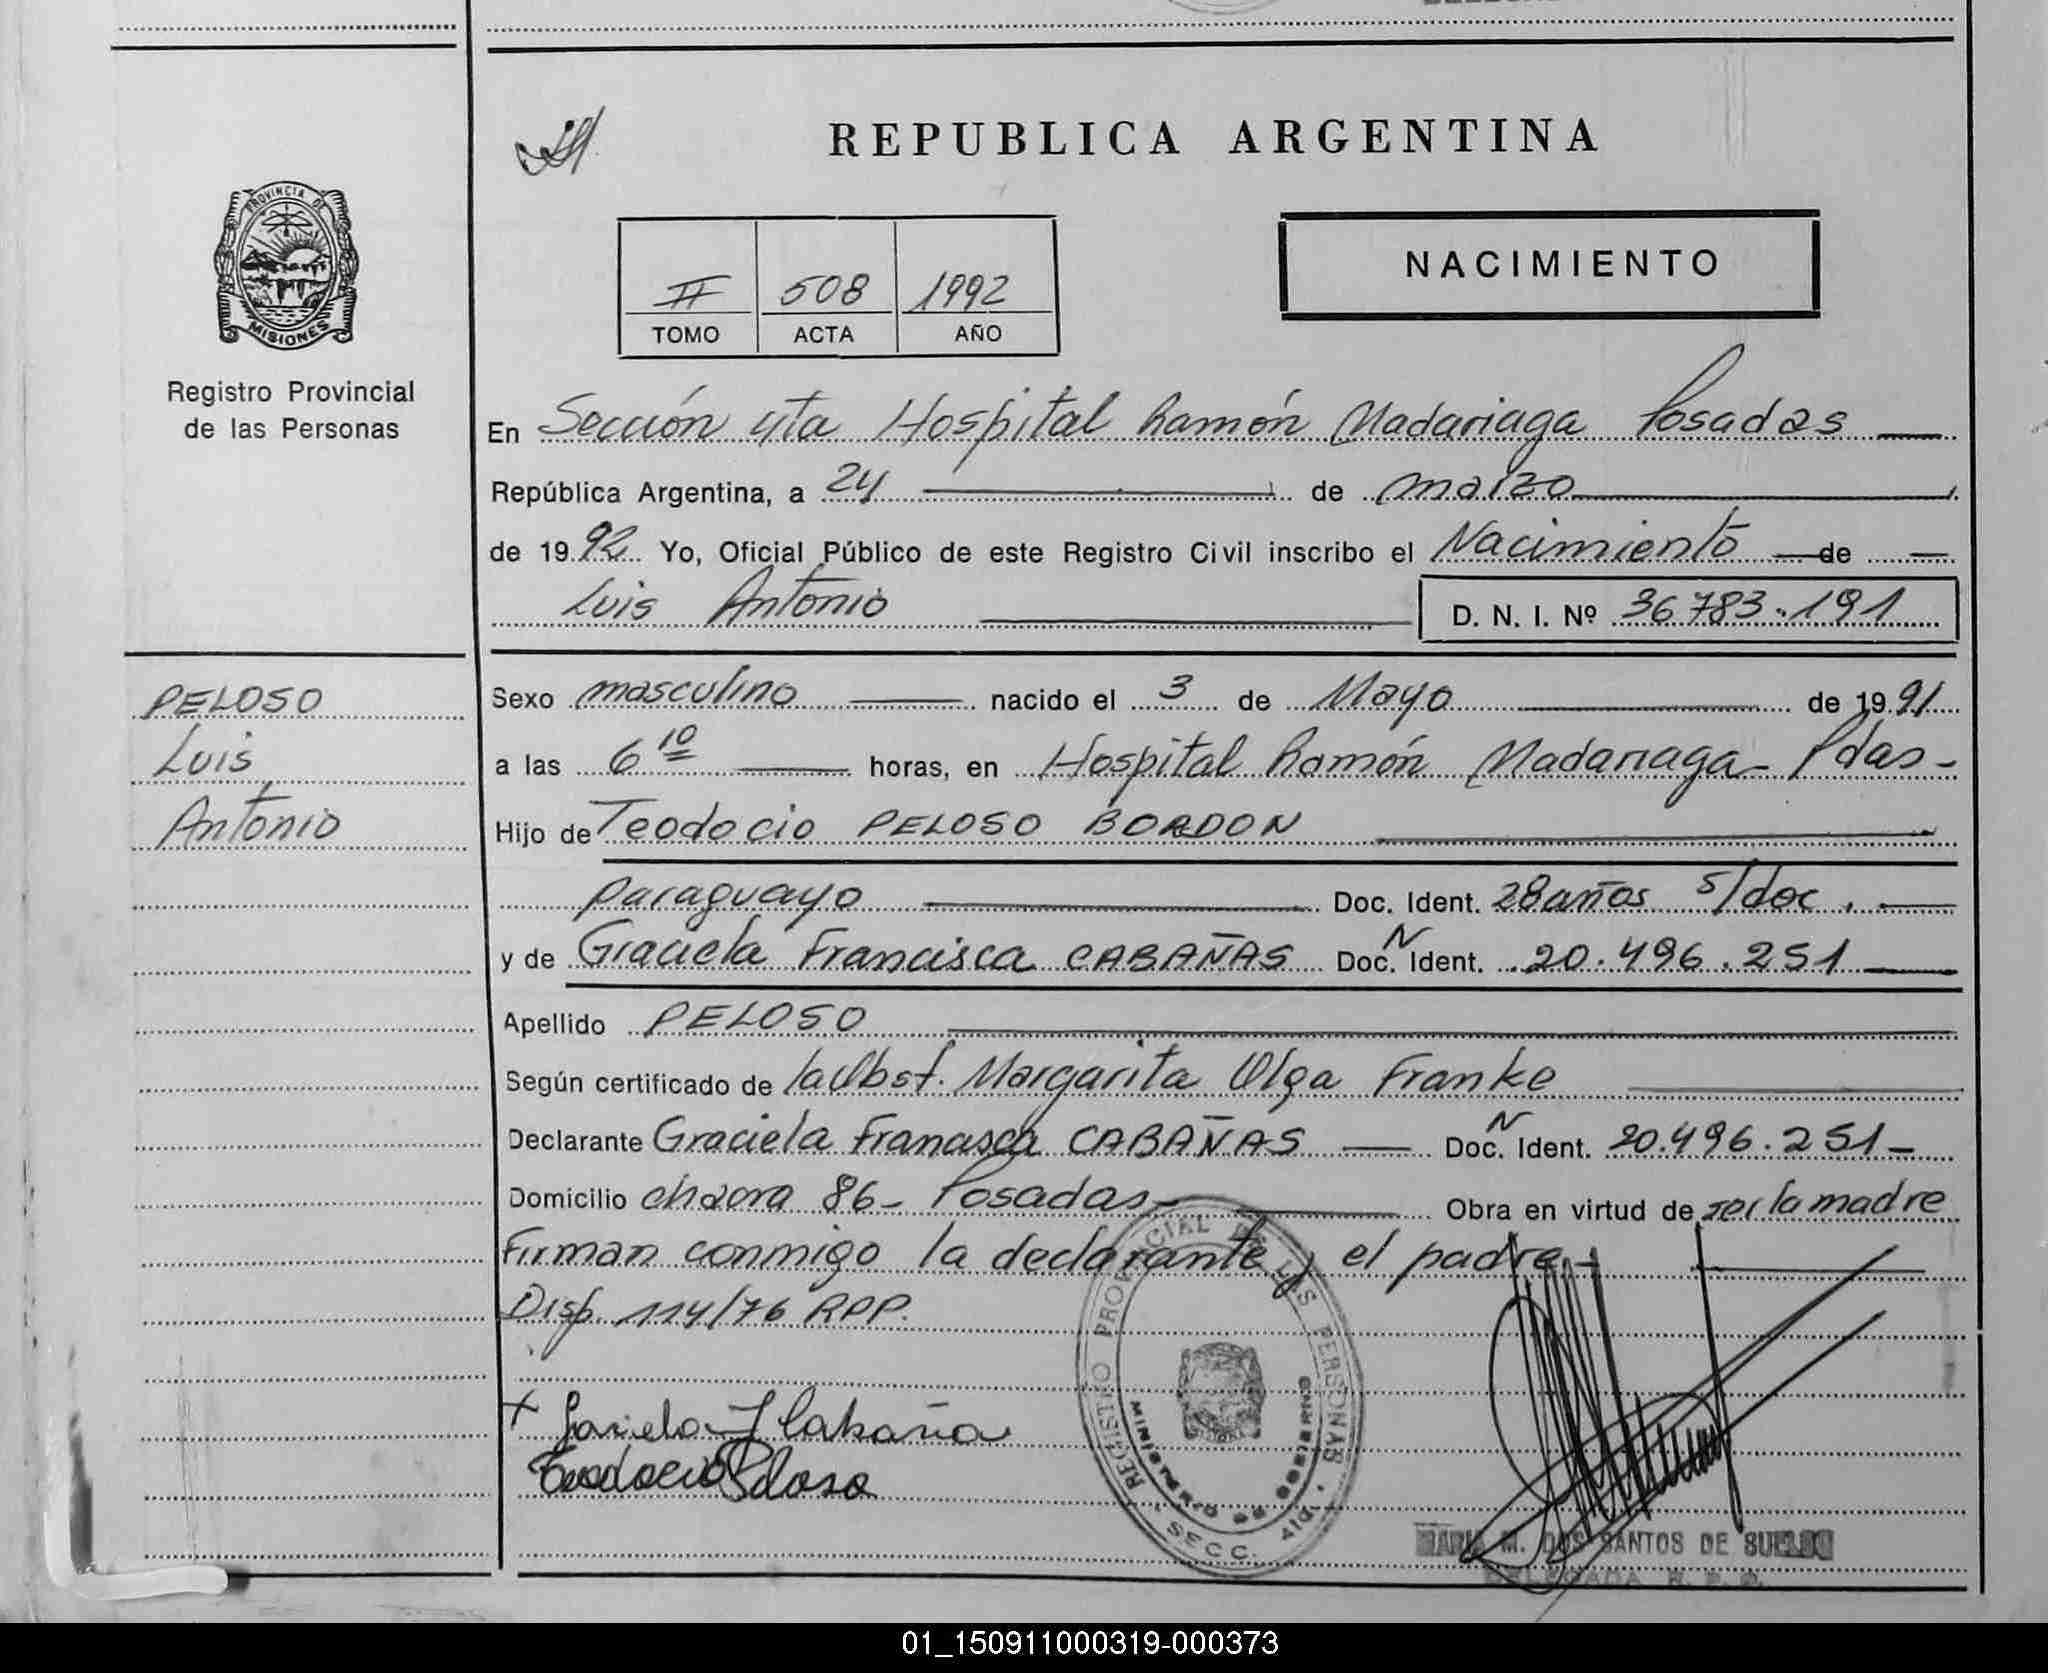 REPUBLICA ARGENTINA
PROVINCIA DE
MISIONES
Registro Provincial
de las Personas
II 508 1992
TOMO ACTA AÑO
NACIMIENTO
En Sección 4ta Hospital Ramón Madariaga Posadas
República Argentina, a 24 de marzo
de 1992 Yo, Oficial Público de este Registro Civil inscribo el Nacimiento de
Luis Antonio D. N. I. Nº 36783.191
PELOSO
Luis
Antonio
Sexo masculino nacido el 3 de Mayo de 1991
a las 6 10 horas, en Hospital Ramón Madariaga - Pdas -
Hijo de Teodocio PELOSO BORDON
paraguayo Doc. Ident. 28 años s/doc.
y de Graciela Francisca CABAÑAS Doc. N Ident. 20.496.251
Apellido PELOSO
Según certificado de la Obst. Margarita Olga Franke
Declarante Graciela Francisca CABAÑAS Doc. N Ident. 20.496.251-
Domicilio chacra 86- Posadas- Obra en virtud de ser la madre
Firman conmigo la declarante y el padre.-
Disp. 114/76 RPP.
REGISTRO PROVINCIAL DE LAS PERSONAS
MINISTERIO DE GOBIERNO
SECC. 4ta
Graciela F Cabaña
Teodocio Peloso
MARIA M. DOS SANTOS DE
DELEGADA R. P. P.
01_150911000319-000373